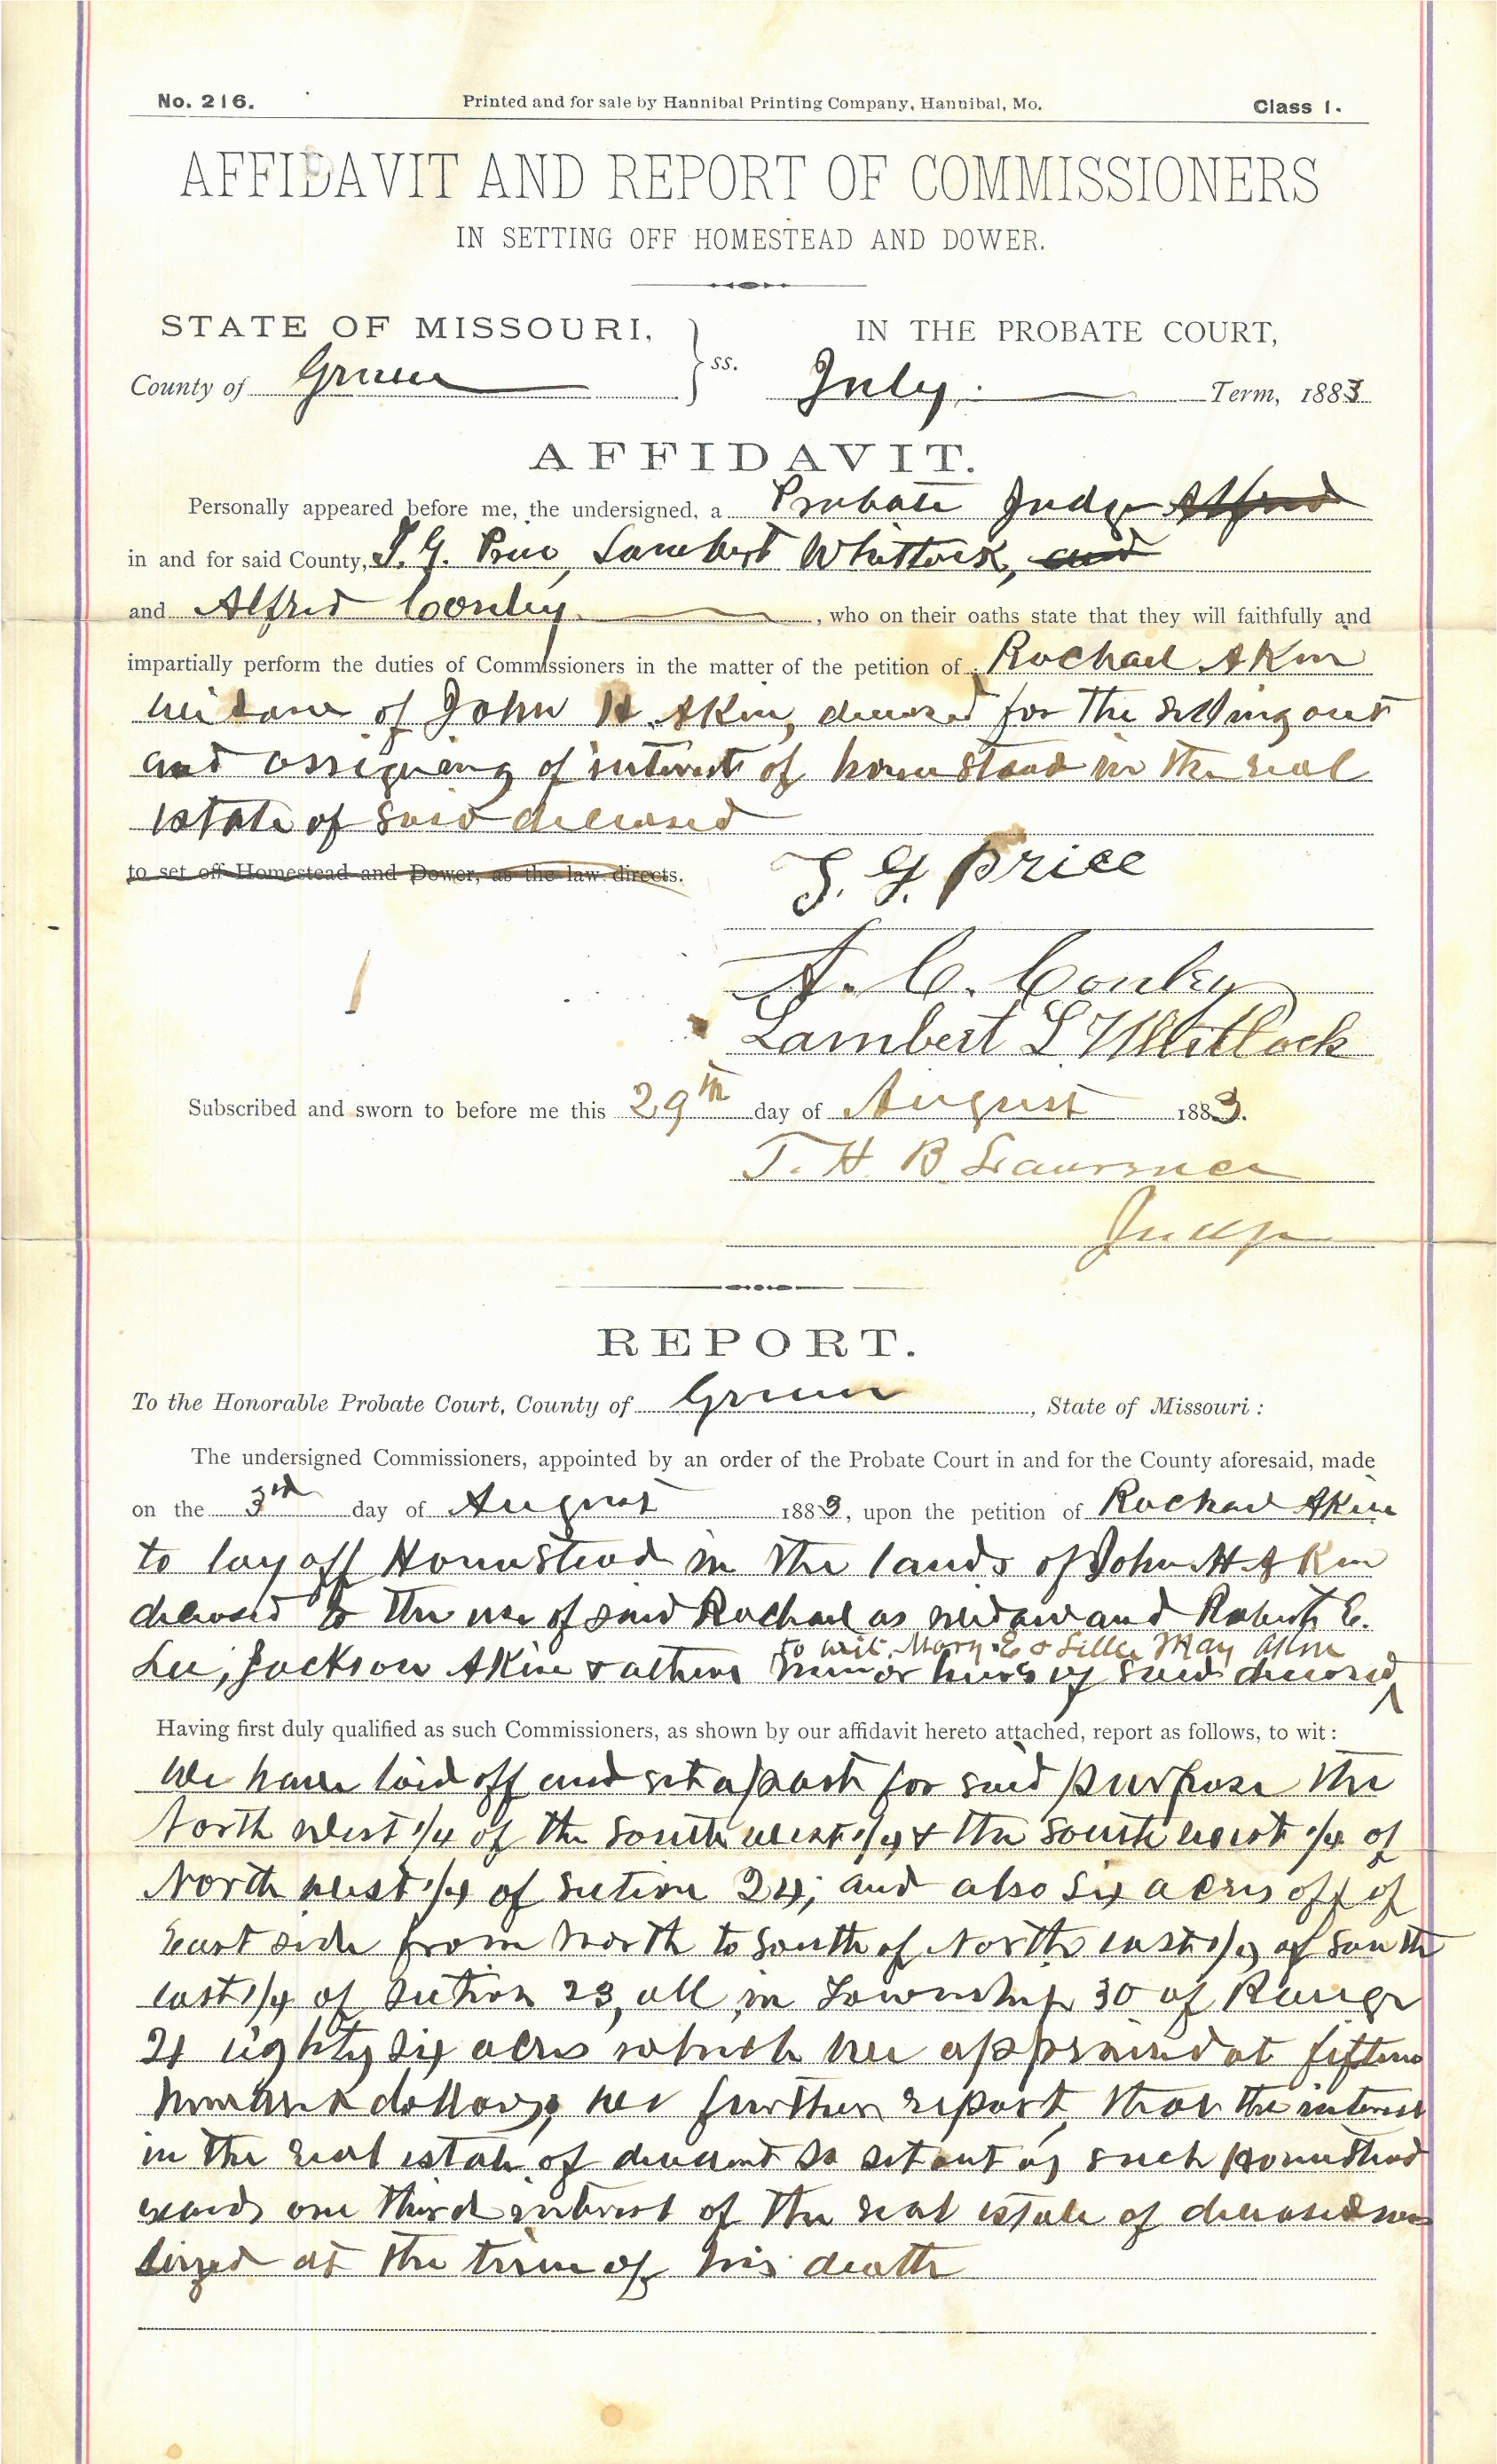 No. 216. Printed and for sale by Hannibal Printing Company, Hannibal, Mo. Class 1.
AFFIDAVIT AND REPORT OF COMMISSIONERS
IN SETTING OFF HOMESTEAD AND DOWER.
STATE OF MISSOURI, } ss. IN THE PROBATE COURT,
County of Greene July Term, 1883
AFFIDAVIT.
Personally appeared before me, the undersigned, a Probate Judge Alfred
in and for said County, T. G. Price, Lambert Whitlock, and
and Alfred Conley, who on their oaths state that they will faithfully and
impartially perform the duties of Commissioners in the matter of the petition of Rachael Akin
widow of John H. Akin, deceased for the setting out
and assigning of interest of homestead in the real
estate of said deceased
to set off Homestead and Dower, as the law directs.
T. G. Price
A. C. Conley
Lambert L Whitlock
Subscribed and sworn to before me this 29th day of August 1883.
T. H. B. Lawrence
Judge
REPORT.
To the Honorable Probate Court, County of Greene, State of Missouri:
The undersigned Commissioners, appointed by an order of the Probate Court in and for the County aforesaid, made
on the 3rd day of August 1883, upon the petition of Rachael Akin
to lay off Homestead in the lands of John H Akin
deceased to the use of said Rachael as widow and Robert E.
to wit, Mary E & Lillie May Akin
Lee, Jackson Akin & others minor heirs of said deceased
Having first duly qualified as such Commissioners, as shown by our affidavit hereto attached, report as follows, to wit:
We have laid off and set apart for said purpose the
North west 1/4 of the South west 1/4 & the South west 1/4 of
North west 1/4 of Section 24; and also Six acres off of
East side from North to South of North east 1/4 of South
east 1/4 of Section 23, all in Township 30 of Range
21 eighty six acres which we appraised at fifteen
hundred dollars; we further report that the interest
in the real estate of deceased so set out as such homestead
exceeds one third interest of the real estate of deceased was
siezed at the time of his death